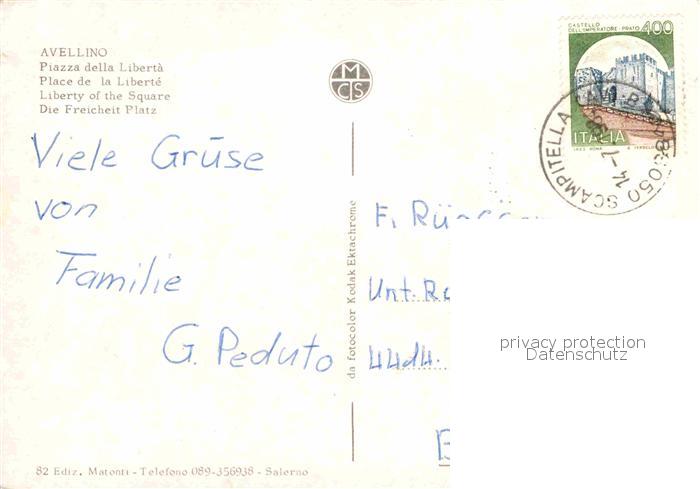 AVELLINO
Piazza della Libertà
Place de la Liberté
Liberty of the Square
Die Freicheit Platz
MCS
CASTELLO
DELL'IMPERATORE - PRATO 400
ITALIA
83050 SCAMPITELLA
Viele Grüse
von
Familie
G. Peduto
da fotocolor Kodak Ektachrome
F.
Unt.
privacy protection
Datenschutz
82 Ediz. Matonti - Telefono 089-356938 - Salerno